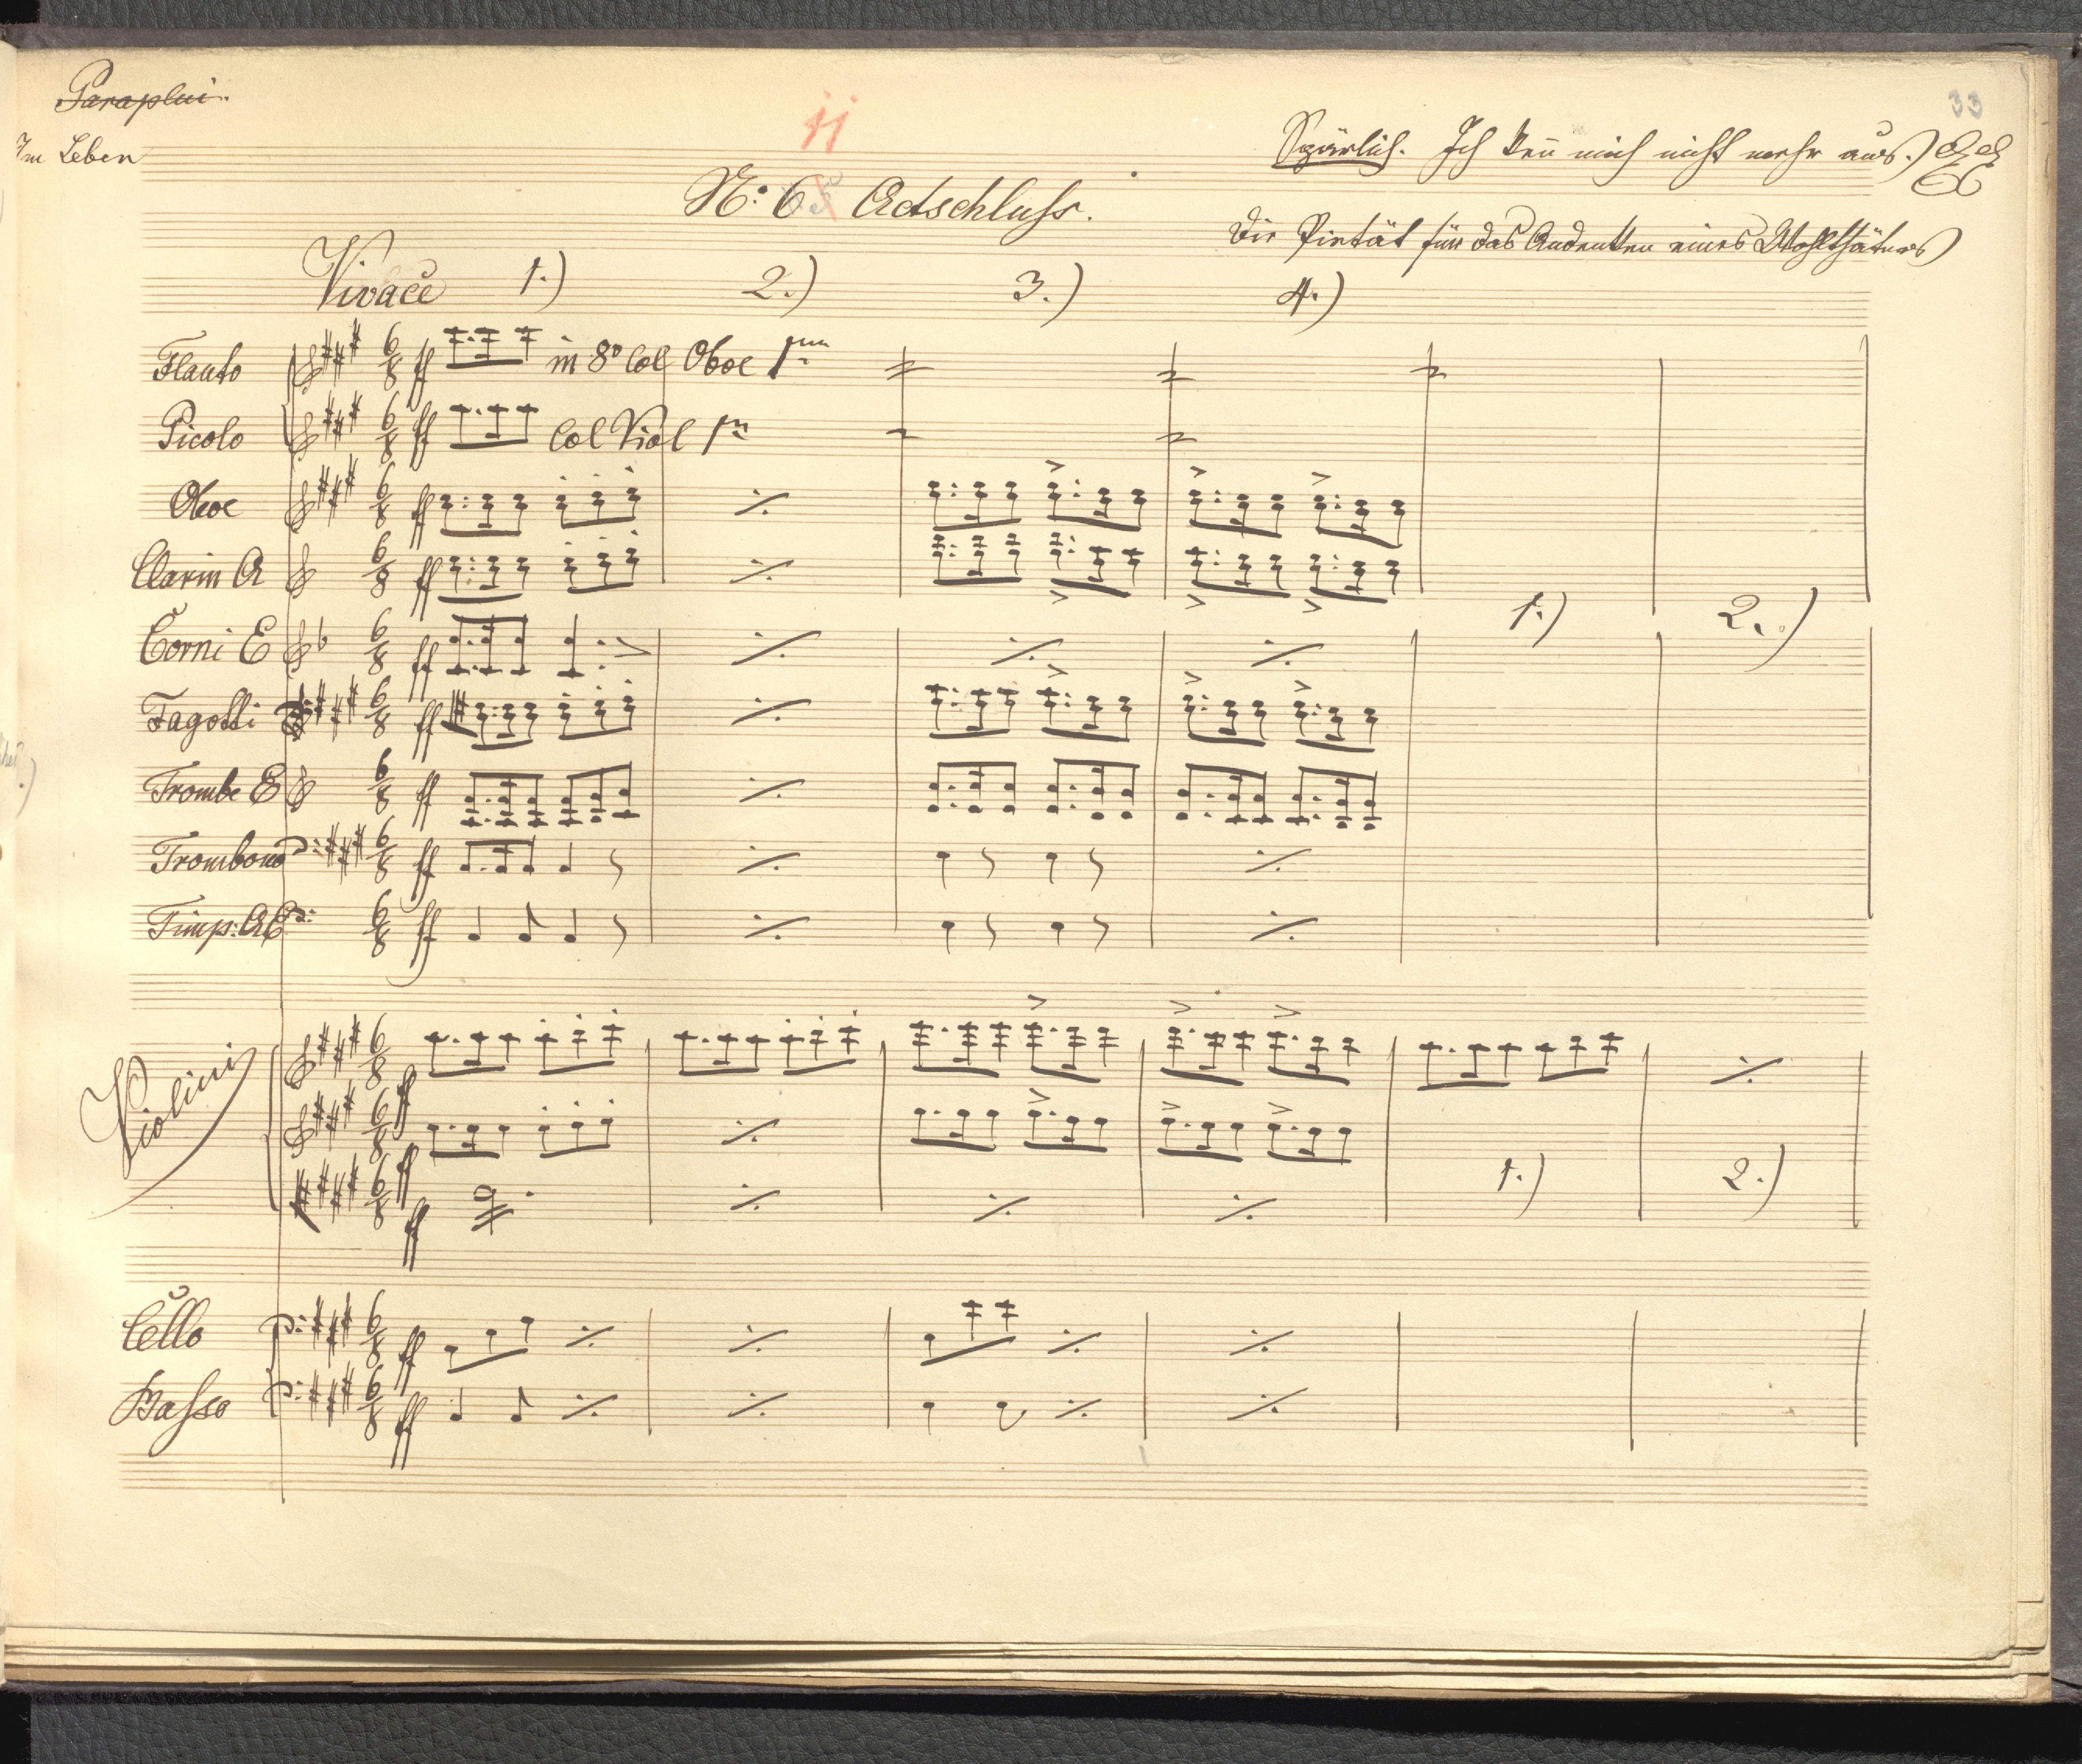 Paraplui.
Im Leben
33
11
Spärlich. Ich keñ mich nicht mehr aus.)
N: 6 Actschluss.
Die Pietät für das Andenken eines Wohlthäters)
Vivace 1.) 2.) 3.) 4.)
Flauto ff in 8º Col Oboe 1mo
Picolo ff Col Viol 1mo
Oboe ff
Clarin A ff
1.) 2.)
Corni E ff
Fagotti ff
Trombe E ff
Trombone ff
Timp: A E ff
Violini ff
ff
ff 1.) 2.)
Cello ff
Basso ff